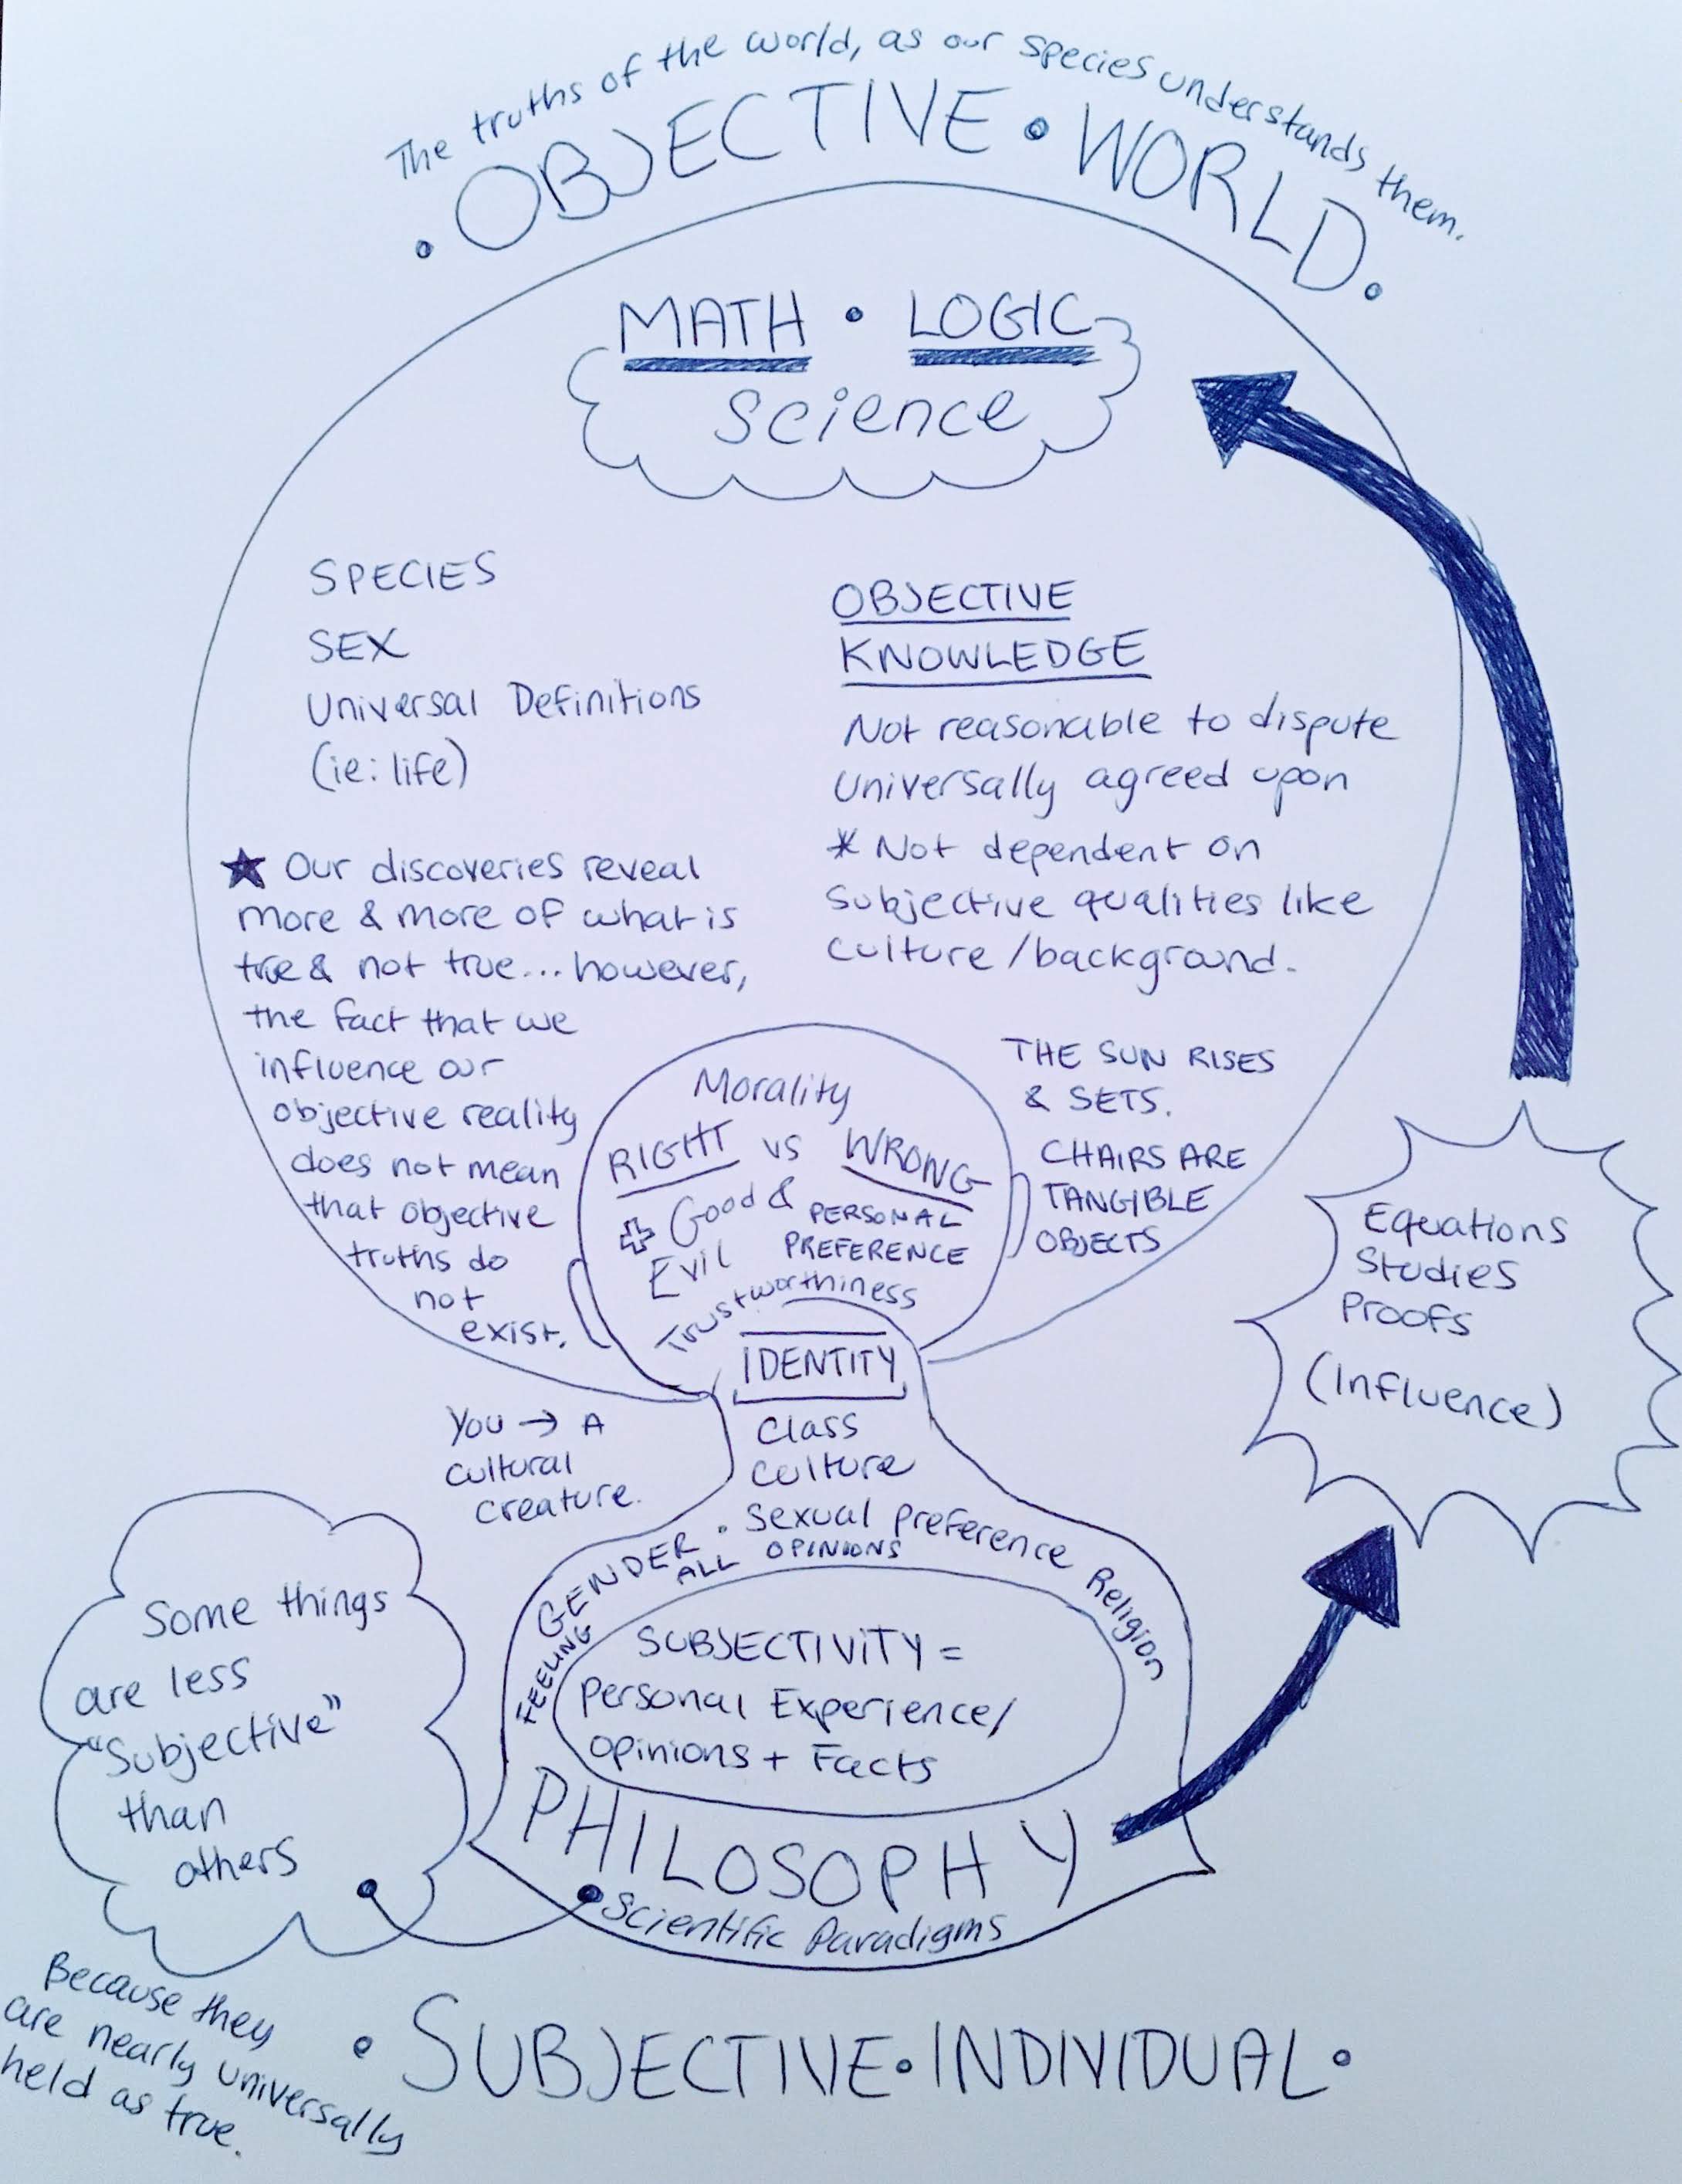 The truths of the world, as our species understands them.
• OBJECTIVE • WORLD •
MATH • LOGIC
Science
SPECIES
SEX
Universal Definitions
(ie: life)
OBJECTIVE
KNOWLEDGE
Not reasonable to dispute
Universally agreed upon
* Not dependent on
Subjective qualities like
culture/background.
★ Our discoveries reveal
more & more of what is
true & not true... however,
the fact that we
influence our
objective reality
does not mean
that objective
truths do
not
exist.
THE SUN RISES
& SETS.
CHAIRS ARE
TANGIBLE
OBJECTS
Morality
RIGHT vs WRONG
+ Good &
Evil
PERSONAL
PREFERENCE
Trustworthiness
IDENTITY
Class
Culture
You → A
cultural
creature.
GENDER • Sexual preference Religion
FEELING
ALL OPINIONS
SUBJECTIVITY =
Personal Experience/
opinions + Facts
PHILOSOPHY
Scientific Paradigms
Equations
Studies
Proofs
(Influence)
Some things
are less
"Subjective"
than
others
Because they
are nearly universally
held as true.
• SUBJECTIVE • INDIVIDUAL •